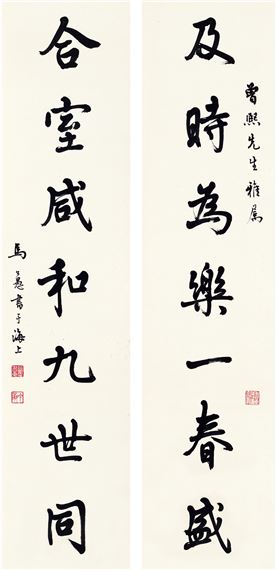 曾熙先生雅属
及時為樂一春盛
合室咸和九世同
馬一愚書于海上